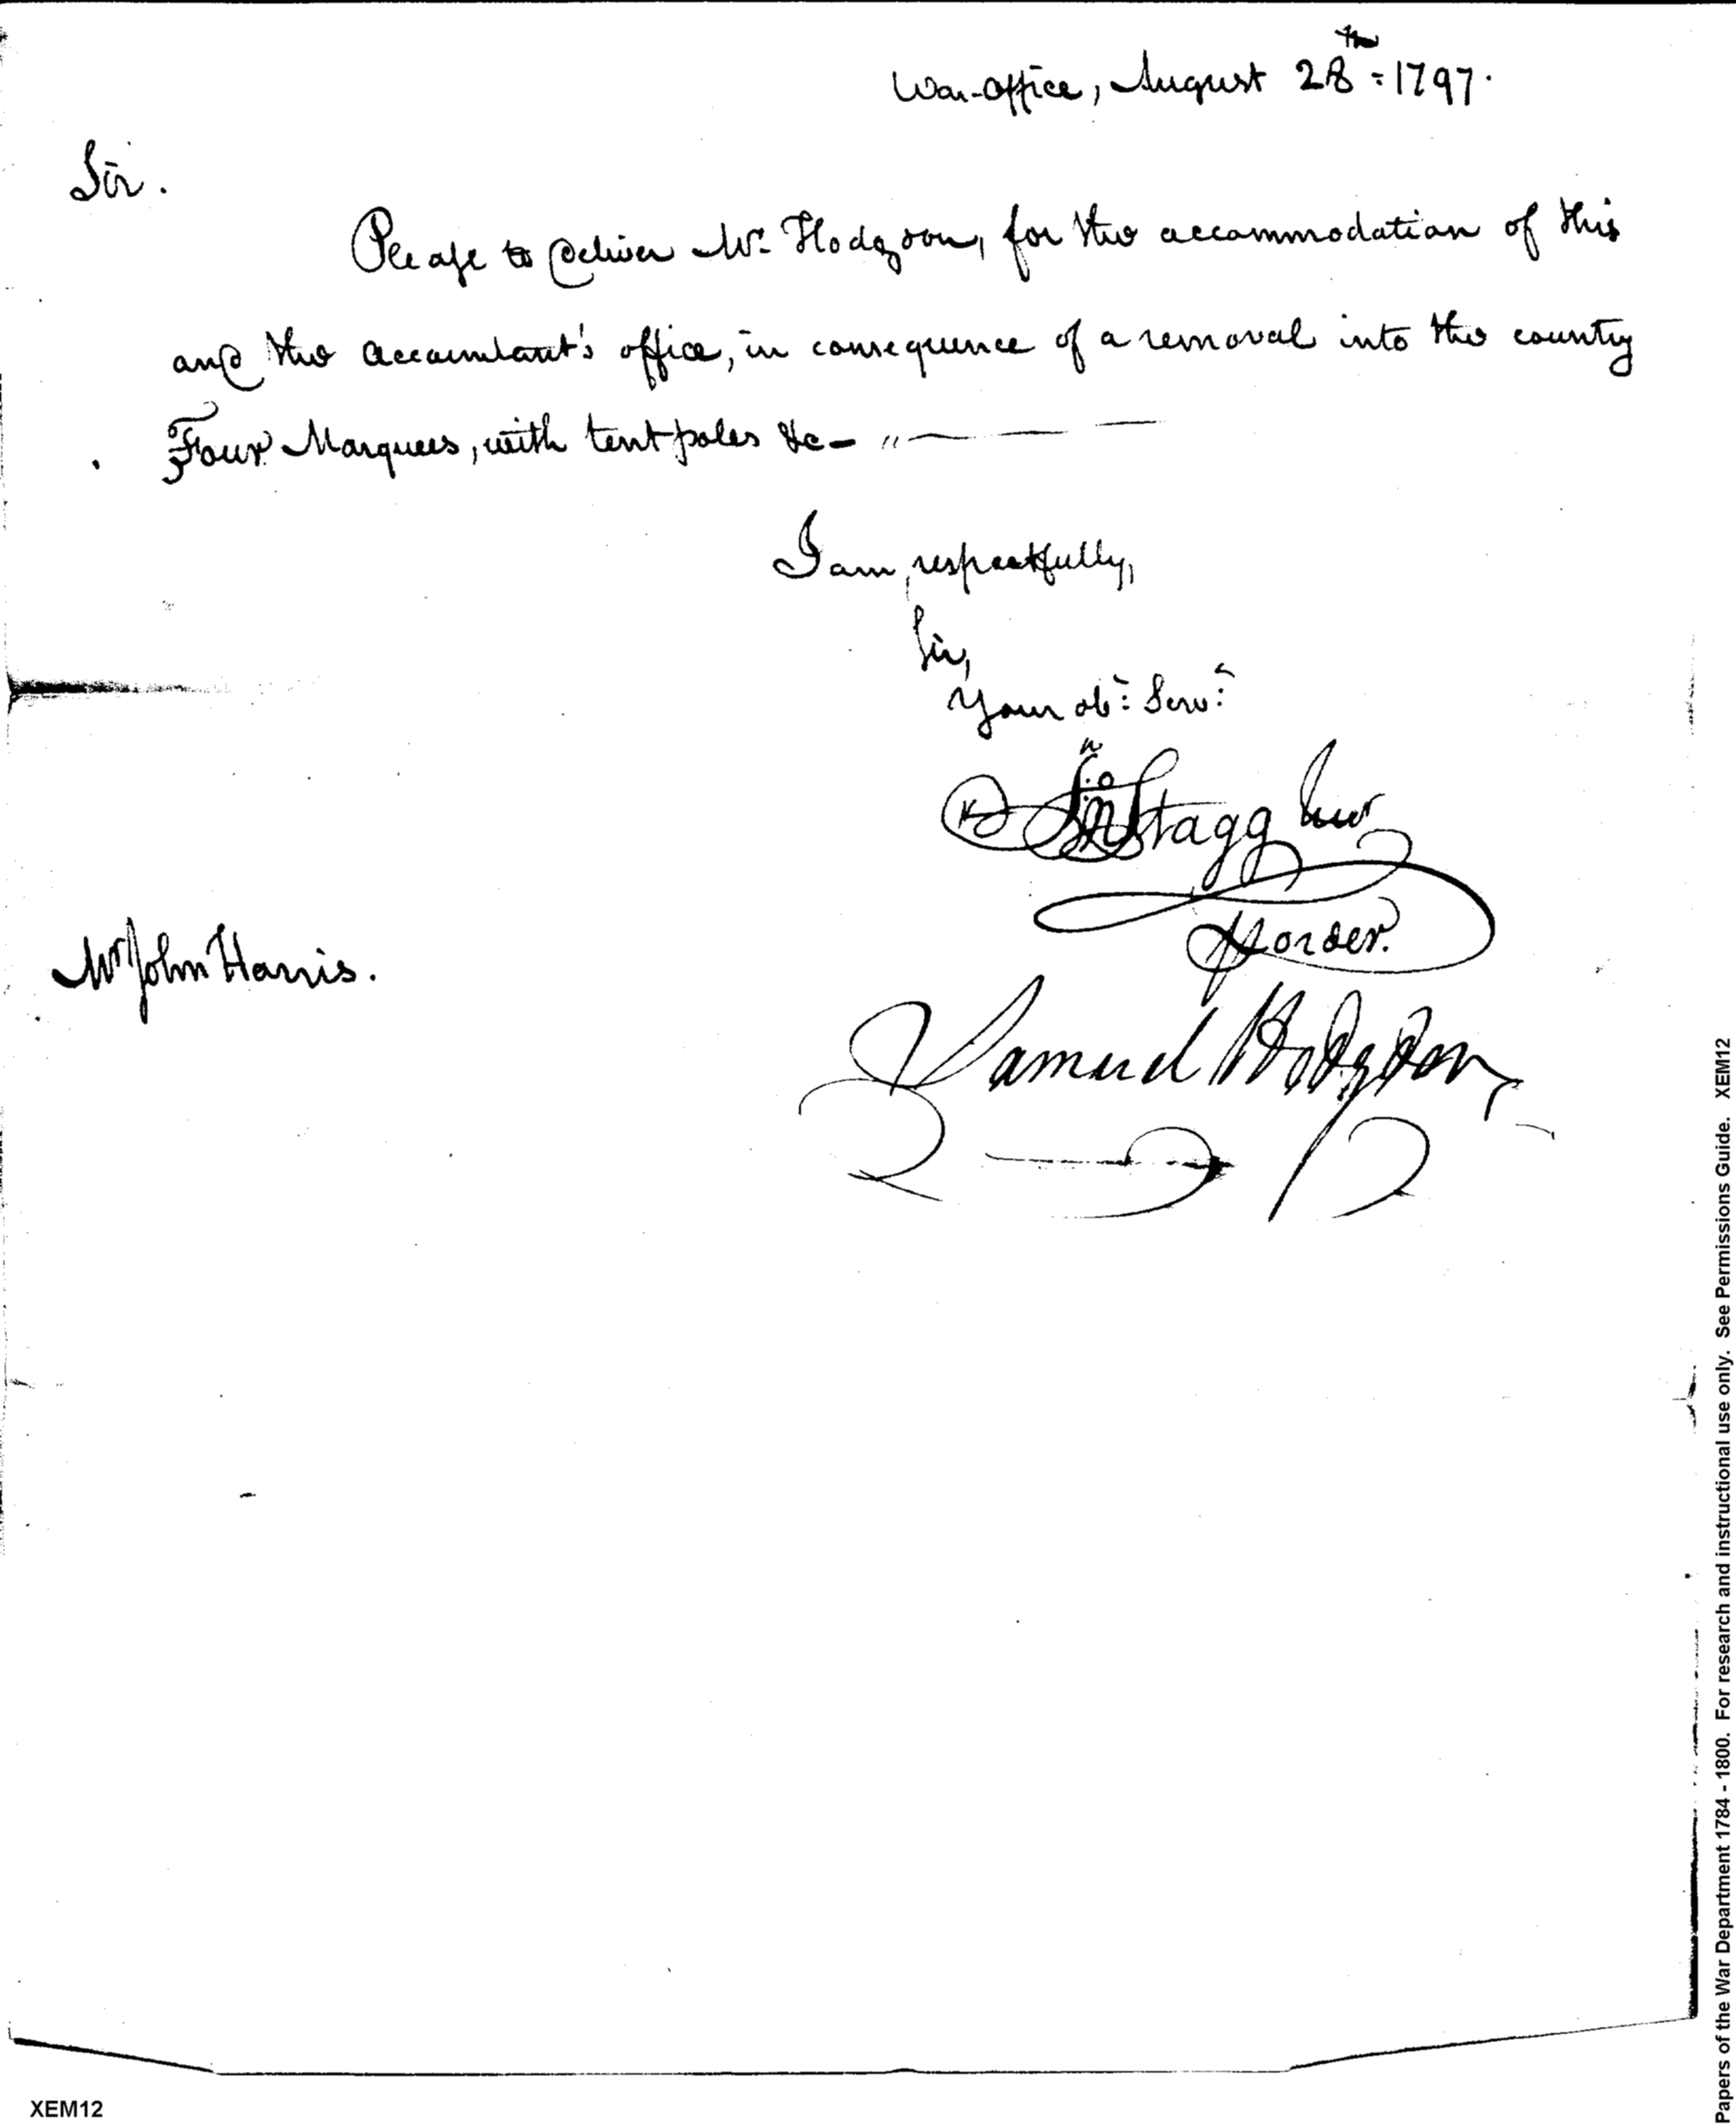 War-office, August 28th = 1797.
Sir.
Please to deliver Mr. Hodgson, for the accommodation of this
and the accountant's office, in consequence of a removal into the country
Four Marquees, with tent poles &c - "
I am, respectfully,
Sir,
Your obt: Servt:
Jno Stagg Junr
Mr John Harris.
order.
Samuel Hodgdon
Papers of the War Department 1784 - 1800. For research and instructional use only. See Permissions Guide. XEM12
XEM12